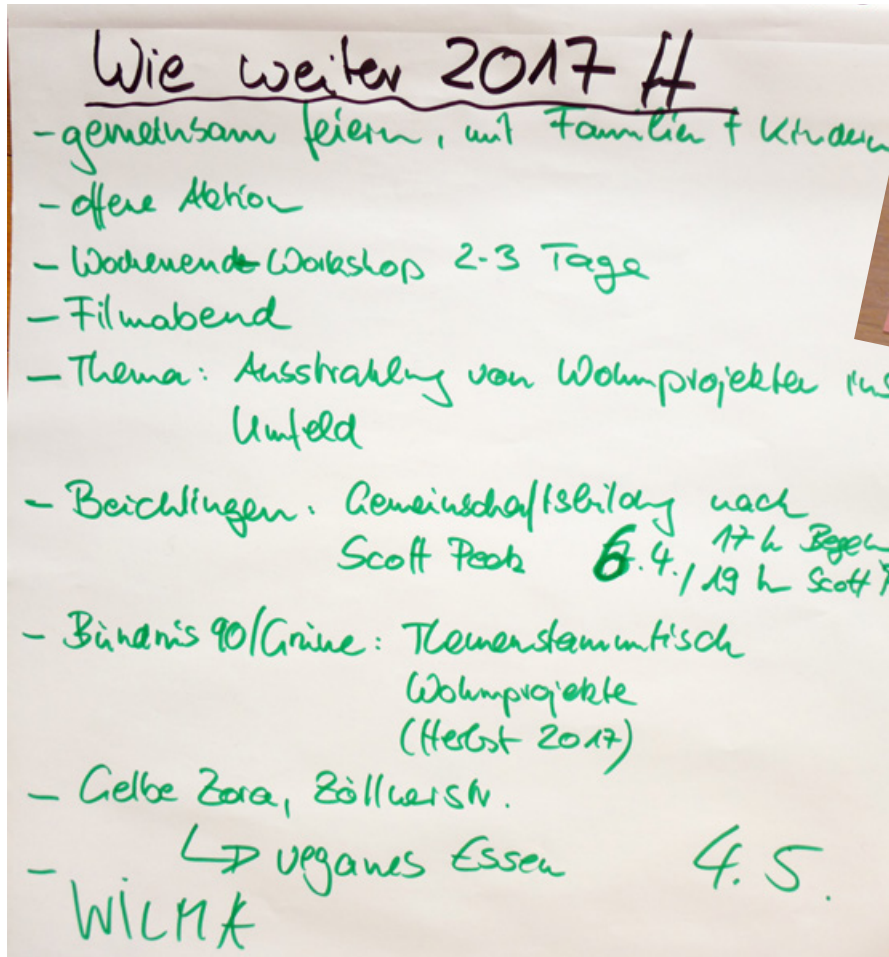 Wie weiter 2017 !!
- gemeinsam feiern, mit Familien + Kindern
- offene Aktion
- Wochenende Workshop 2-3 Tage
- Filmabend
- Thema: Ausstrahlung von Wohnprojekten ins
Umfeld
- Beichlingen: Gemeinschaftsbildung nach
Scott Peck 6.4. 17 h
/ 19 h Scott P
- Bündnis 90/Grüne: Themenstammtisch
Wohnprojekte
(Herbst 2017)
- Gelbe Zora, Zöllnerstr.
↳ veganes Essen 4.5.
-
WILMA